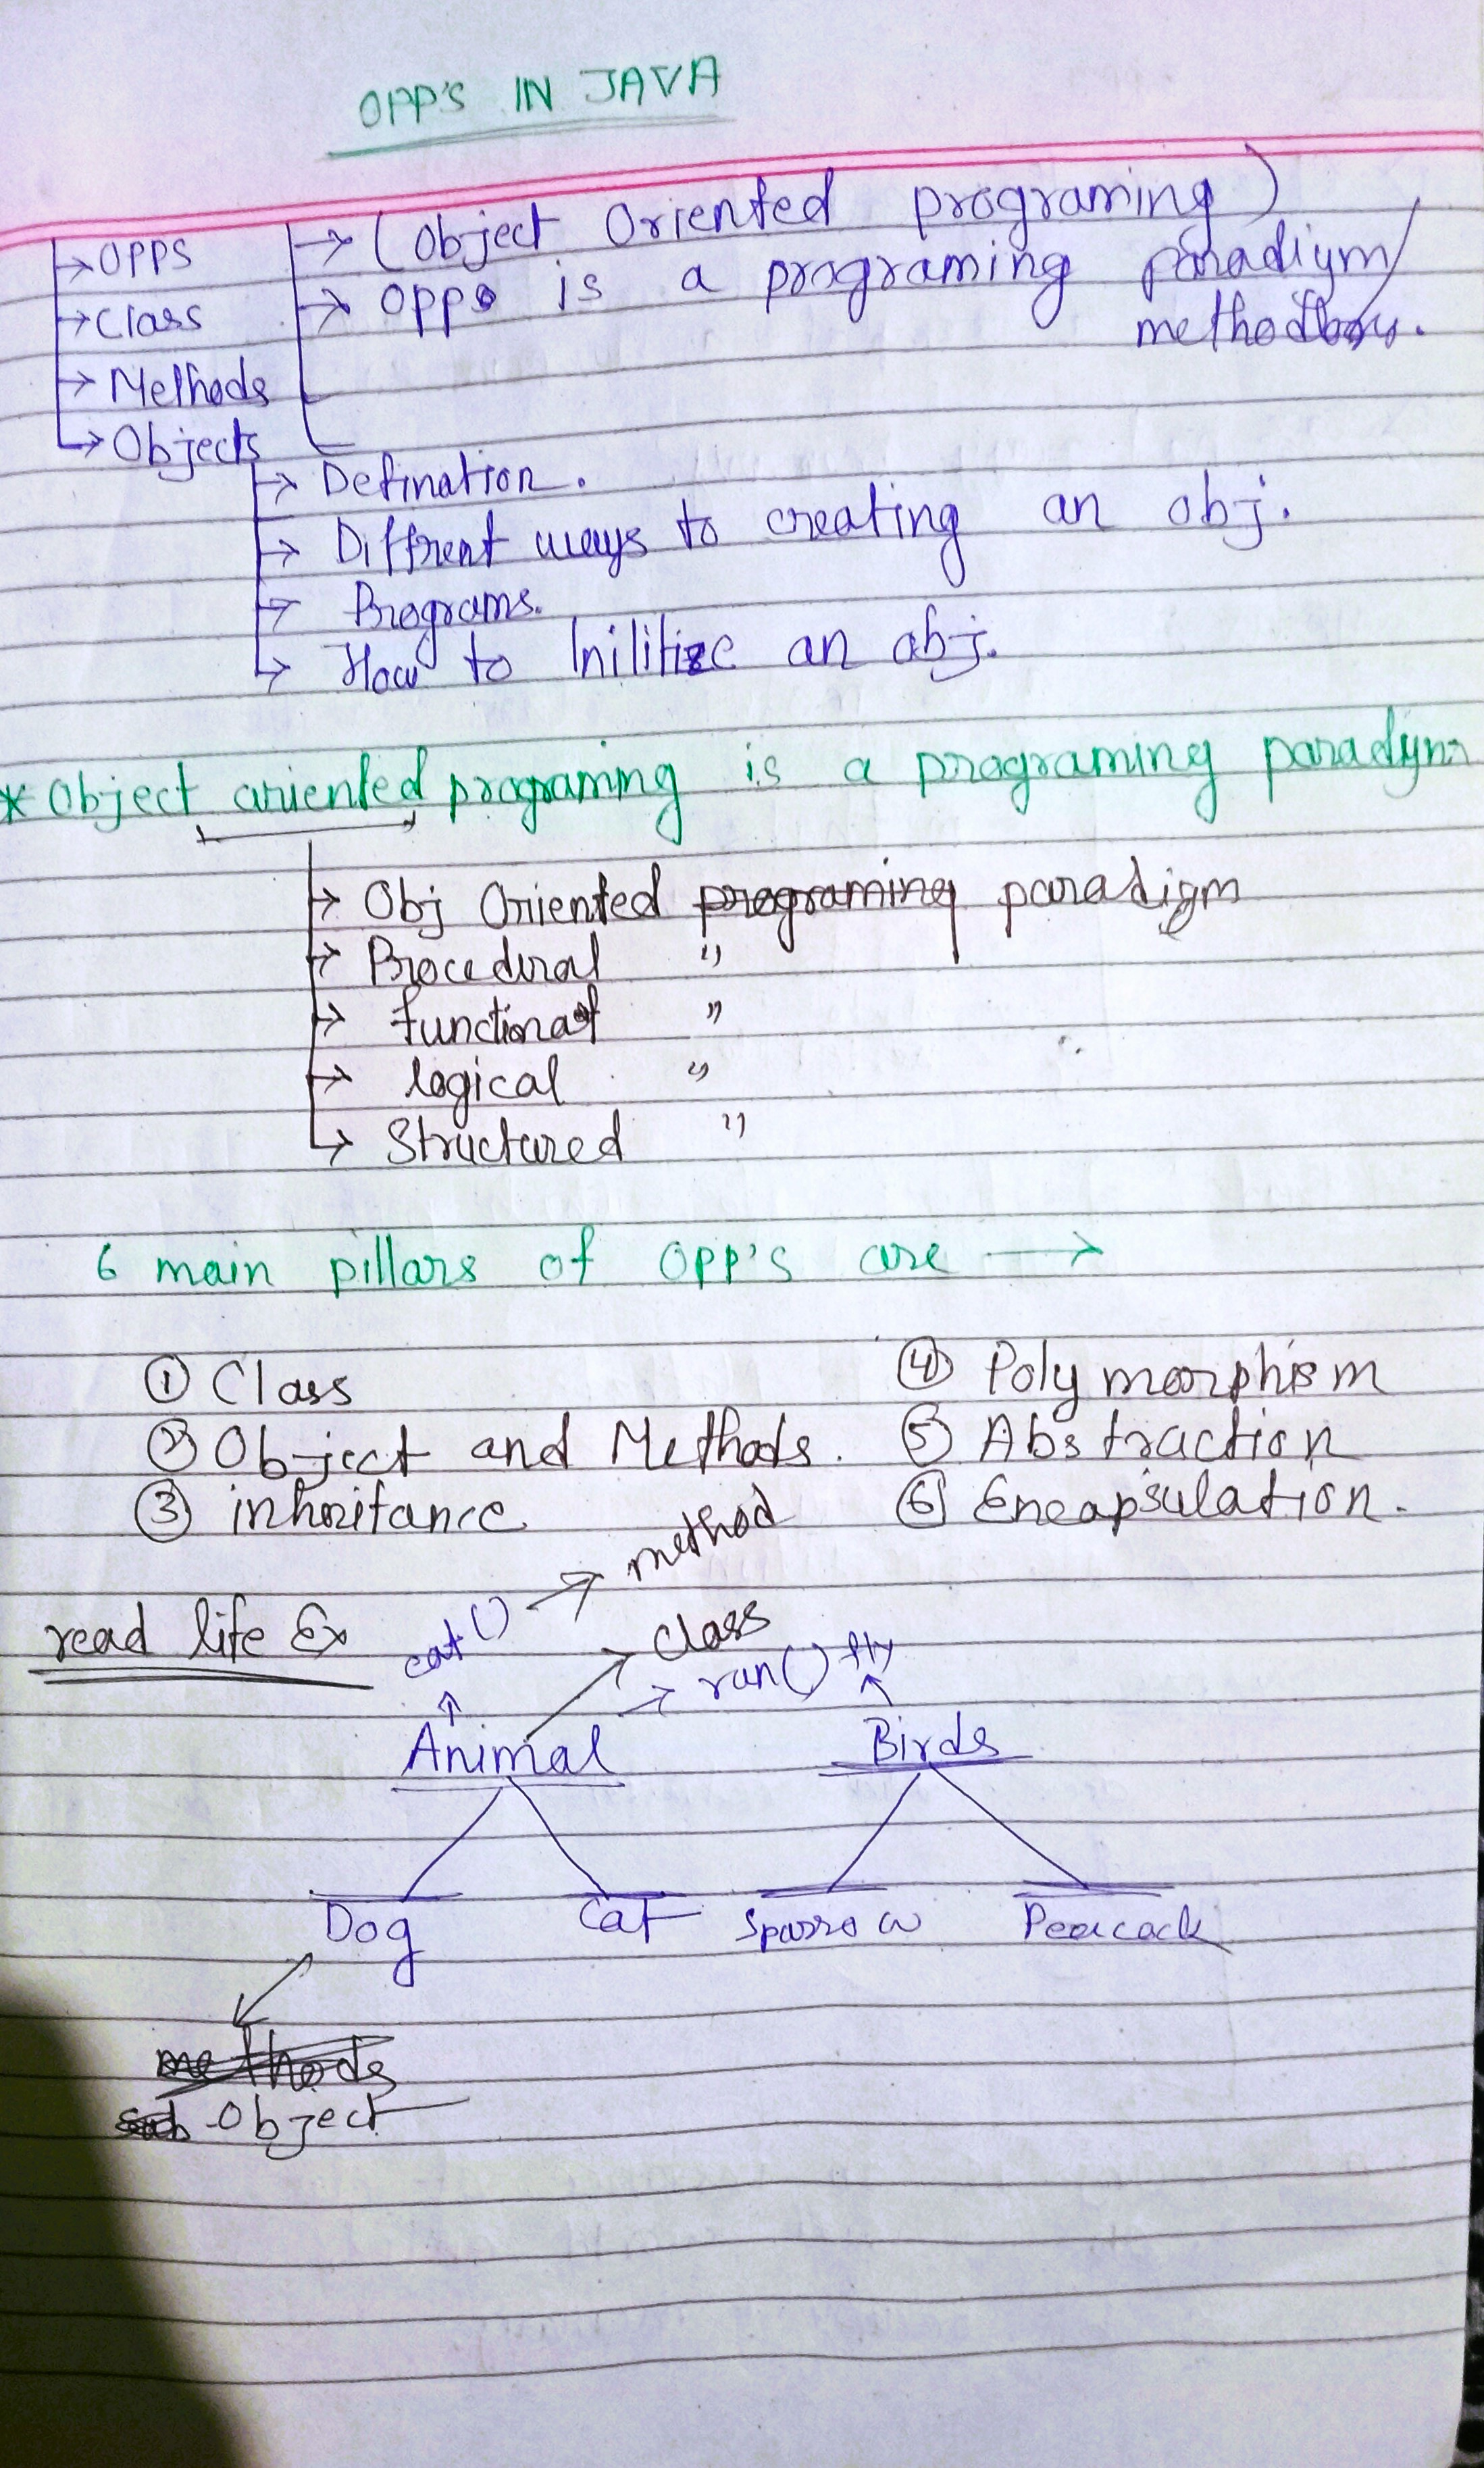 OPP'S IN JAVA
→ OPPS
→ Class
→ Methods
→ Objects
→ (Object Oriented programing)
→ OPPs is a programing paradiym/
methodlogy.
→ Defination.
→ Diffrent ways to creating an obj.
→ Programs.
→ How to Initilize an obj.
* Object oriented programing is a programing paradym
→ Obj Oriented programing paradigm
→ Procedural "
→ functional "
→ logical "
→ Structured "
6 main pillars of OPP'S are →
① Class
② Object and Methods.
③ inheritance
④ Polymorphism
⑤ Abstraction
⑥ Encapsulation.
read life Ex
eat() → method
→ class
→ run() fly
Animal Birds
Dog Cat Sparrow Peacock
methods
Object